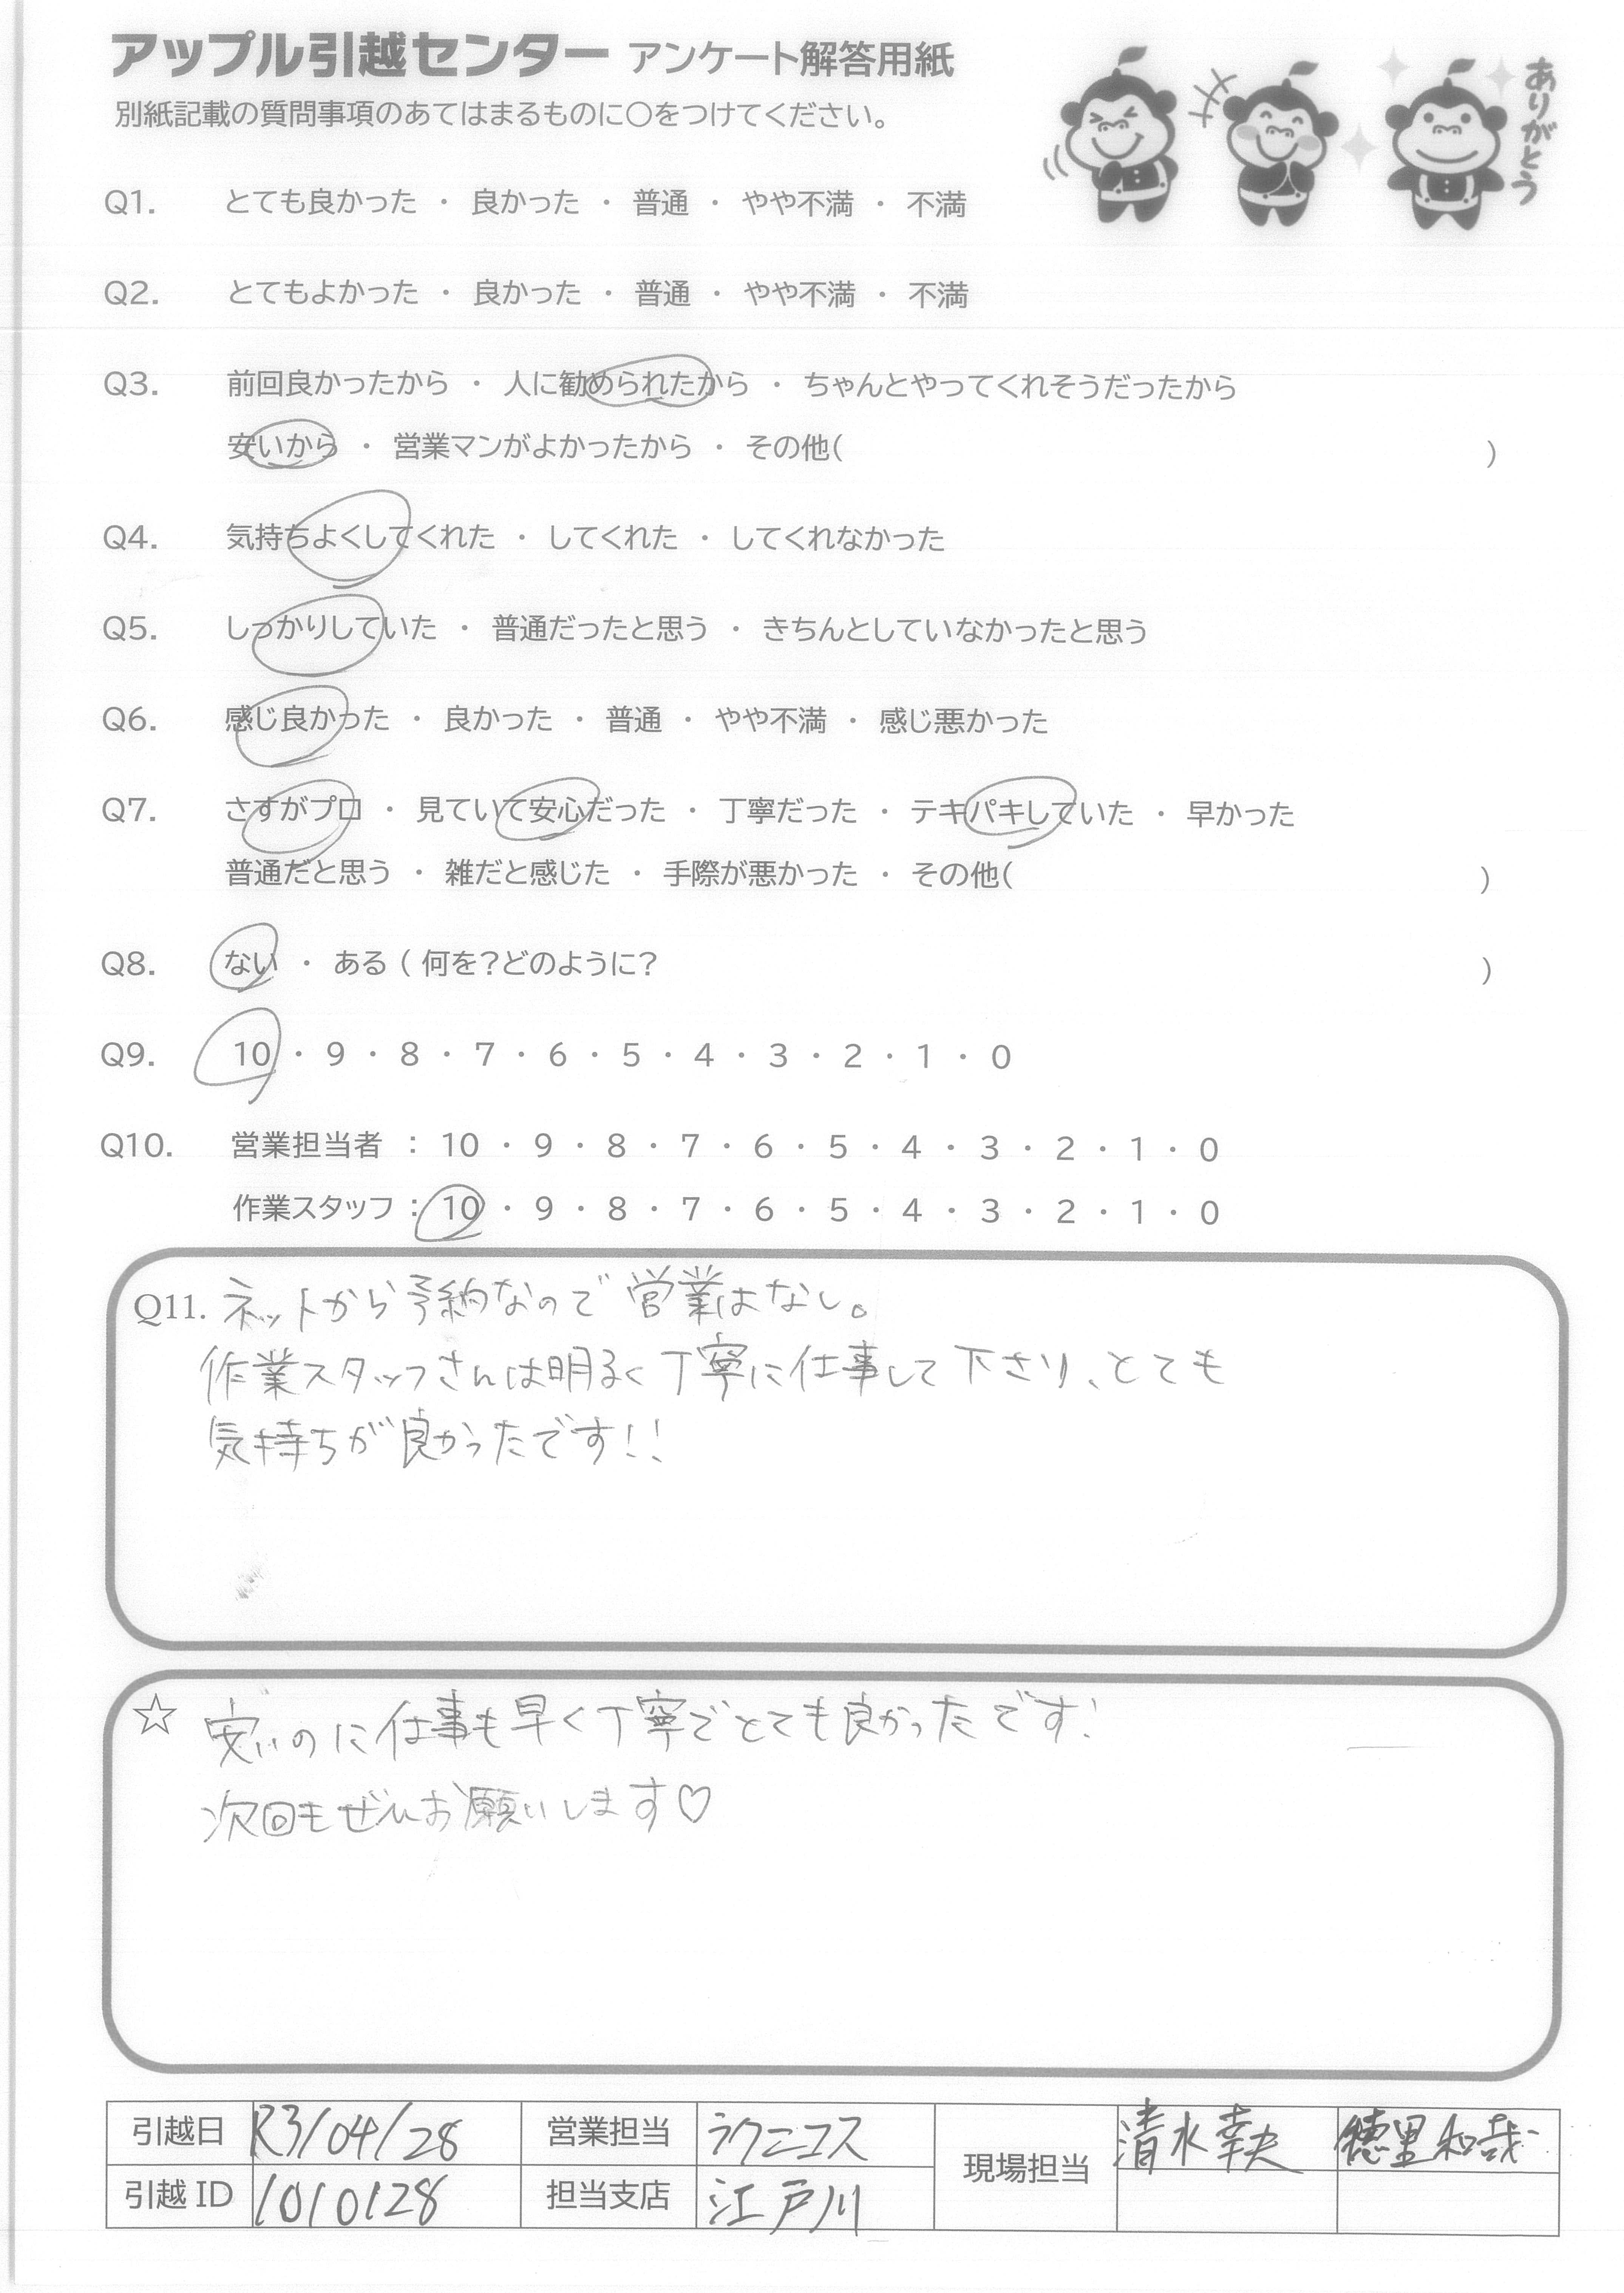 アップル引越センター アンケート解答用紙
別紙記載の質問事項のあてはまるものに〇をつけてください。
ありがとう
Q1. とても良かった ・ 良かった ・ 普通 ・ やや不満 ・ 不満
Q2. とてもよかった ・ 良かった ・ 普通 ・ やや不満 ・ 不満
Q3. 前回良かったから ・ 人に勧められたから ・ ちゃんとやってくれそうだったから
安いから ・ 営業マンがよかったから ・ その他( )
Q4. 気持ちよくしてくれた ・ してくれた ・ してくれなかった
Q5. しっかりしていた ・ 普通だったと思う ・ きちんとしていなかったと思う
Q6. 感じ良かった ・ 良かった ・ 普通 ・ やや不満 ・ 感じ悪かった
Q7. さすがプロ ・ 見ていて安心だった ・ 丁寧だった ・ テキパキしていた ・ 早かった
普通だと思う ・ 雑だと感じた ・ 手際が悪かった ・ その他( )
Q8. ない ・ ある ( 何を?どのように? )
Q9. 10 ・ 9 ・ 8 ・ 7 ・ 6 ・ 5 ・ 4 ・ 3 ・ 2 ・ 1 ・ 0
Q10. 営業担当者 : 10 ・ 9 ・ 8 ・ 7 ・ 6 ・ 5 ・ 4 ・ 3 ・ 2 ・ 1 ・ 0
作業スタッフ : 10 ・ 9 ・ 8 ・ 7 ・ 6 ・ 5 ・ 4 ・ 3 ・ 2 ・ 1 ・ 0
Q11. ネットから予約なので営業はなし。
作業スタッフさんは明るく丁寧に仕事して下さり、とても
気持ちが良かったです!!
☆ 安いのに仕事も早く丁寧でとても良かったです!
次回もぜひお願いします♡
引越日 R3/04/28 営業担当 ラクニコス 現場担当 清水幸夫 穂里和哉
引越ID 1010128 担当支店 江戸川